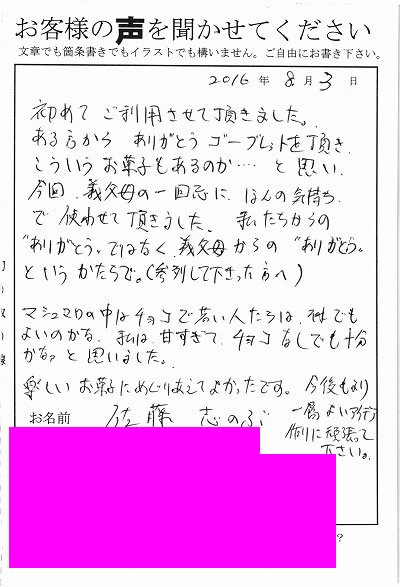 お客様の声を聞かせてください
文章でも箇条書きでもイラストでも構いません。ご自由にお書き下さい。
2016 年 8 月 3 日
初めて ご利用させて頂きました。
ある方から ありがとう ゴーブレットを頂き、
こういうお菓子もあるのか… と思い、
今回、義父母の一回忌に、ほんの気持ち
で 使わせて 頂きました。 私たちからの
"ありがとう"ではなく、義父母からの "ありがとう"
という かたちで。(参列して下さった方へ)
マシュマロの中はチョコで若い人たちは、何でも
よいのかな、私は、甘すぎて、チョコなしでも十分
かなっ と思いました。
楽しい お菓子にめぐりあえてよかったです。 今後もより
一層 よいアイデア
作りに頑張って
下さい。
お名前 佐藤 志のぶ
?